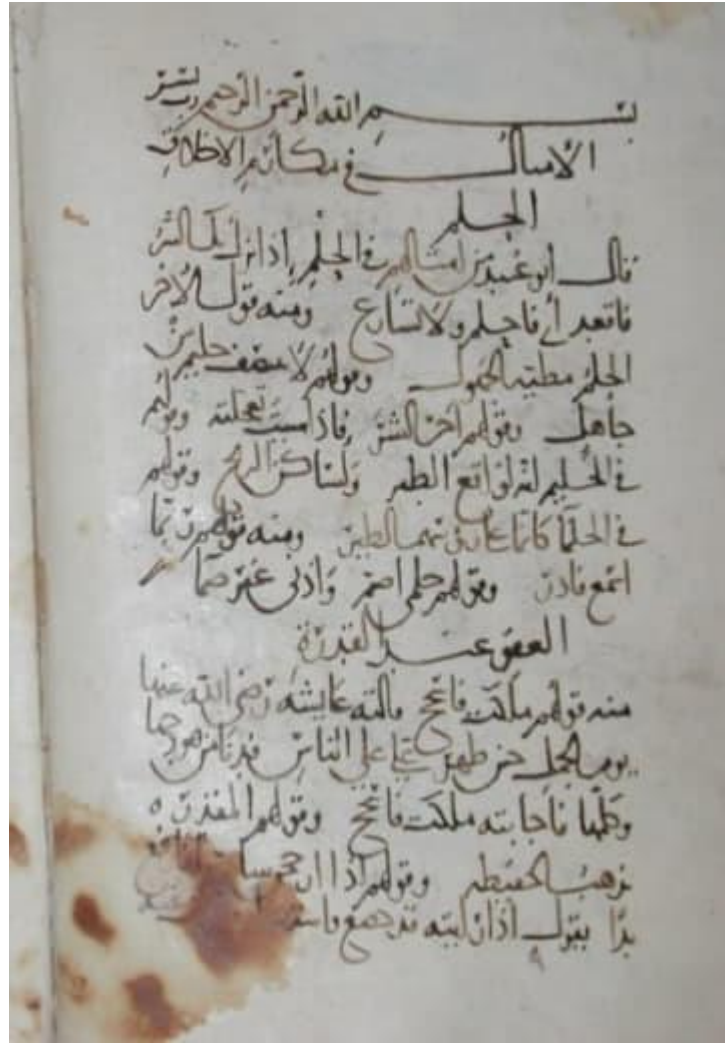 بسم الله الرحمن الرحيم رب يسر
الأمثال في مكارم الأخلاق
الحلم
قال أبو عبيد من أمثالهم في الحلم إذا نزل بك الشر
فاقعد أي فاحلم ولا تسارع ومنه قول الآخر
الحلم مطية الجهول وقولهم لا ينتصف حليم من
جاهل وقولهم أخر الشر فإذا شئت تعجلته وقولهم
في الحليم إنه لواقع الطير ولساكن الريح وقولهم
في الحلما كأنما على رؤسهم الطير ومنه قولهم ربما
اسمع فاذر وقولهم حلمي اصم وأذني غير صما
العفو عند القدرة
منه قولهم ملكت فاسجح قالته عايشة رضي الله عنها
يوم الجمل حين ظهر علي على الناس فدنا من هودجها
وكلمها فأجابته ملكت فاسجح وقولهم المقدرة
تذهب الحفيظة وقولهم إذا ارجحن شاصيا
يدا يقول إذا رأيته قد خضع